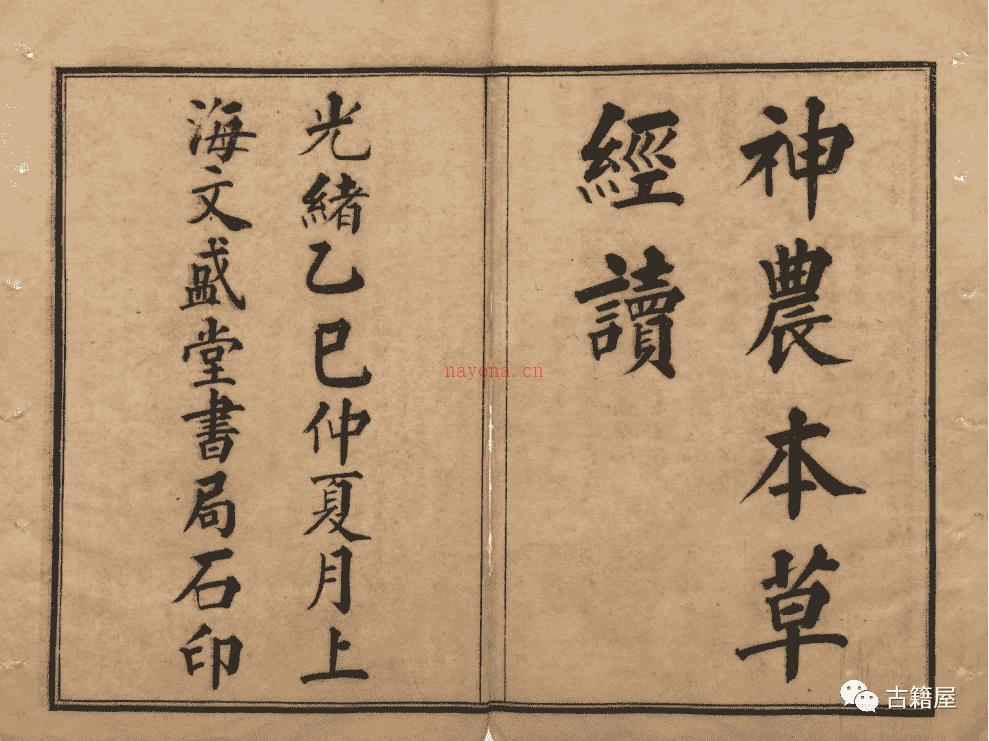 神農本草
經讀
光緒乙巳仲夏月上
海文盛堂書局石印
nayona.cn
古籍屋